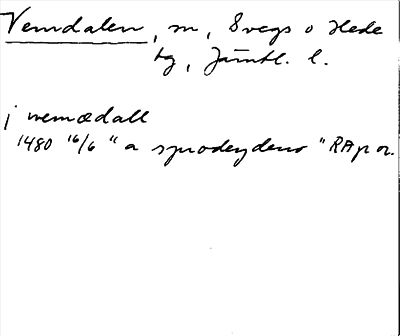 Vemdalen, m, Svegs o Hede
tg, Jämtl. l.
j wemædall
1480 16/6 "a sprodeydens" RAp or.